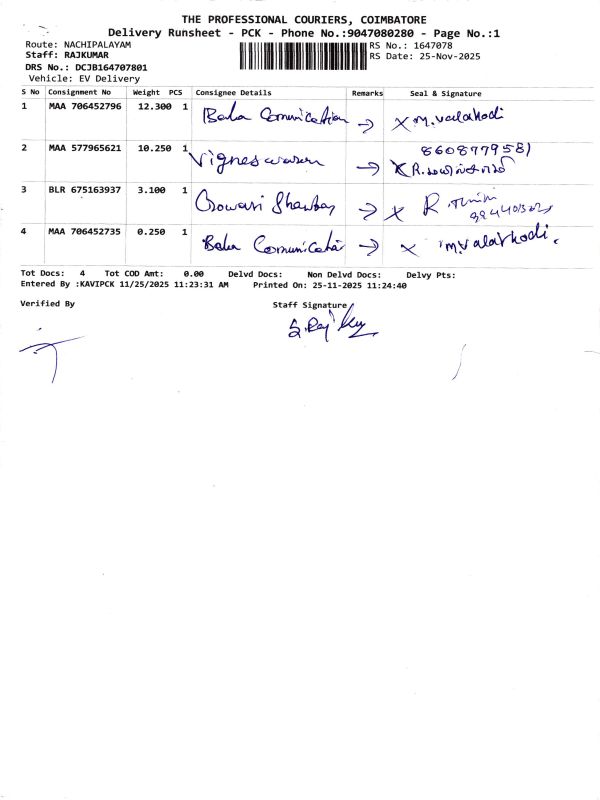 THE PROFESSIONAL COURIERS, COIMBATORE
Delivery Runsheet - PCK - Phone No.:9047080280 - Page No.:1
Route: NACHIPALAYAM RS No.: 1647078
Staff: RAJKUMAR RS Date: 25-Nov-2025
DRS No.: DCJB164707801
Vehicle: EV Delivery
S No Consignment No Weight PCS Consignee Details Remarks Seal & Signature
1 MAA 706452796 12.300 1 Bala Comunication → x M. Valarkodi
2 MAA 577965621 10.250 1 Vigneswaran → x R. 8608779581
3 BLR 675163937 3.100 1 Gowari Shankar → x R.
4 MAA 706452735 0.250 1 Bala → x M. Valarkodi.
Tot Docs: 4 Tot COD Amt: 0.00 Delvd Docs: Non Delvd Docs: Delvy Pts:
Entered By :KAVIPCK 11/25/2025 11:23:31 AM Printed On: 25-11-2025 11:24:40
Verified By Staff Signature
S. Raj